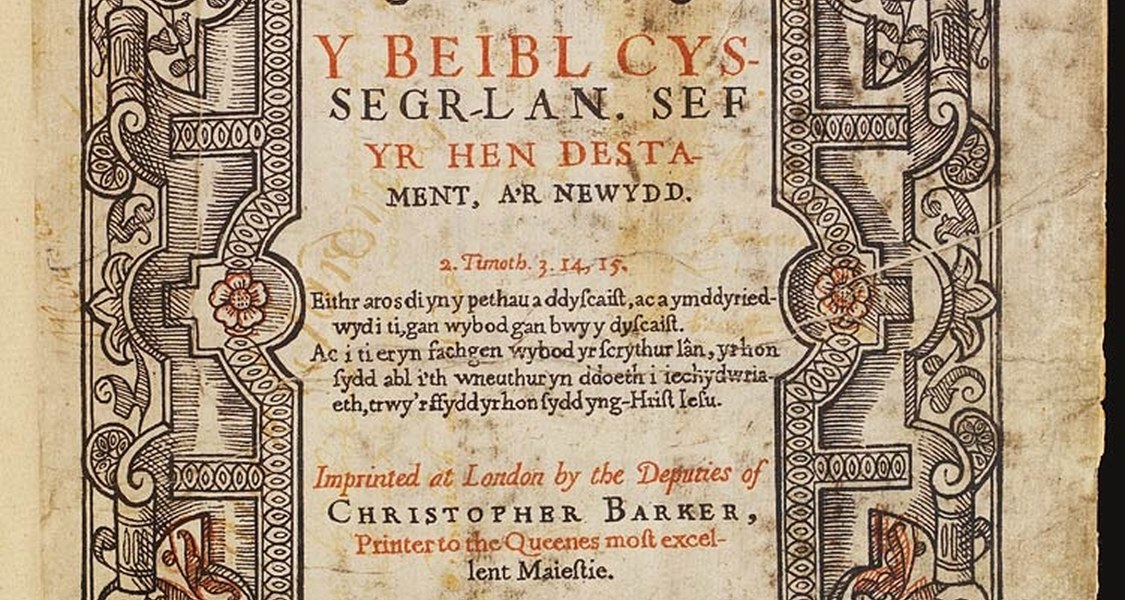 Y BEIBL CYS-
SEGR-LAN. SEF
YR HEN DESTA-
MENT, A'R NEWYDD.
2. Timoth. 3. 14, 15.
Eithr aros di yn y pethau a ddyſcaiſt, ac a ymddyried-
wyd i ti, gan wybod gan bwy y dyſcaiſt.
Ac i ti er yn fachgen wybod yr ſcrythur lân, yr hon
ſydd abl i'th wneuthur yn ddoeth i iechydwria-
eth, trwy'r ffydd yr hon ſydd yng-Hriſt Ieſu.
Imprinted at London by the Deputies of
CHRISTOPHER BARKER,
Printer to the Queenes moſt excel-
lent Maieſtie.